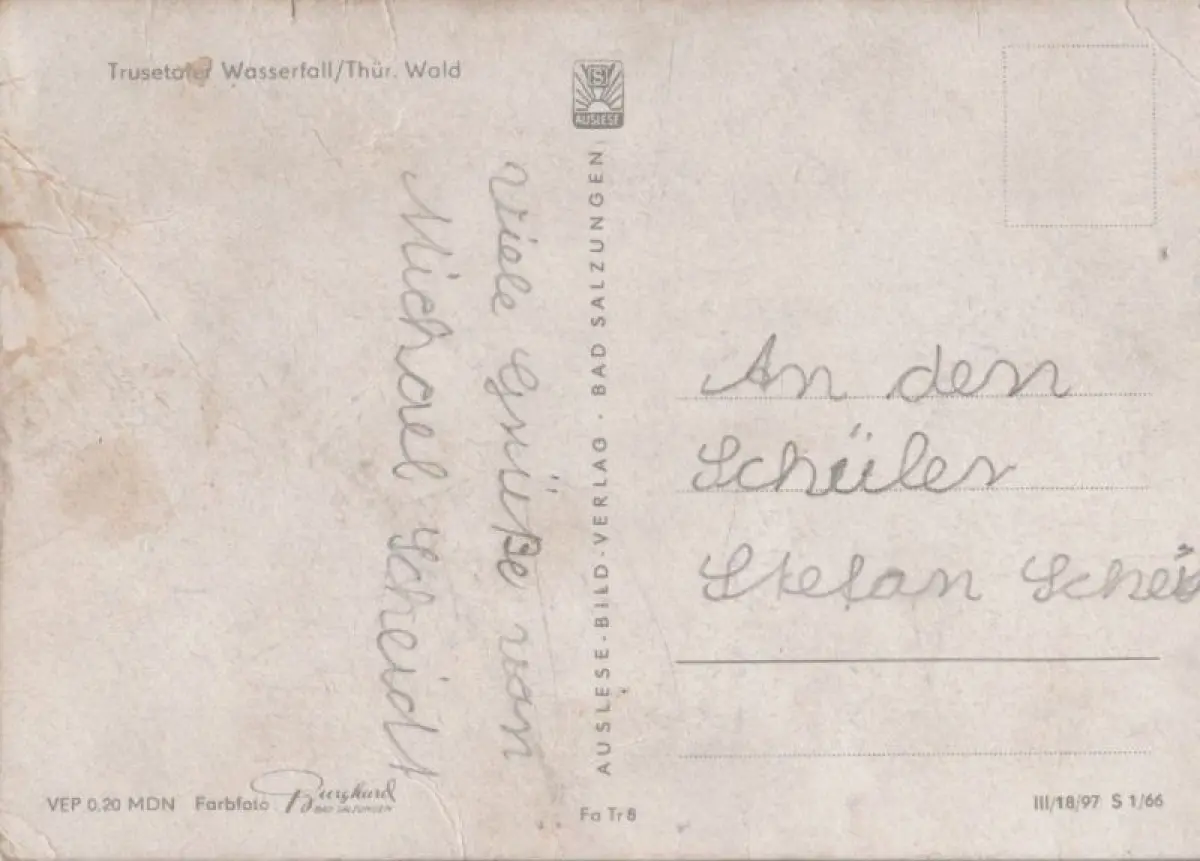 Trusetaler Wasserfall/Thür. Wald
S
AUSLESE
Viele Grüße von
Michael Scheidt
AUSLESE-BILD-VERLAG · BAD SALZUNGEN
An den
Schüler
Stefan Schei
VEP 0,20 MDN Farbfoto Burghard
BAD SALZUNGEN
Fa Tr 8
III/18/97 S 1/66